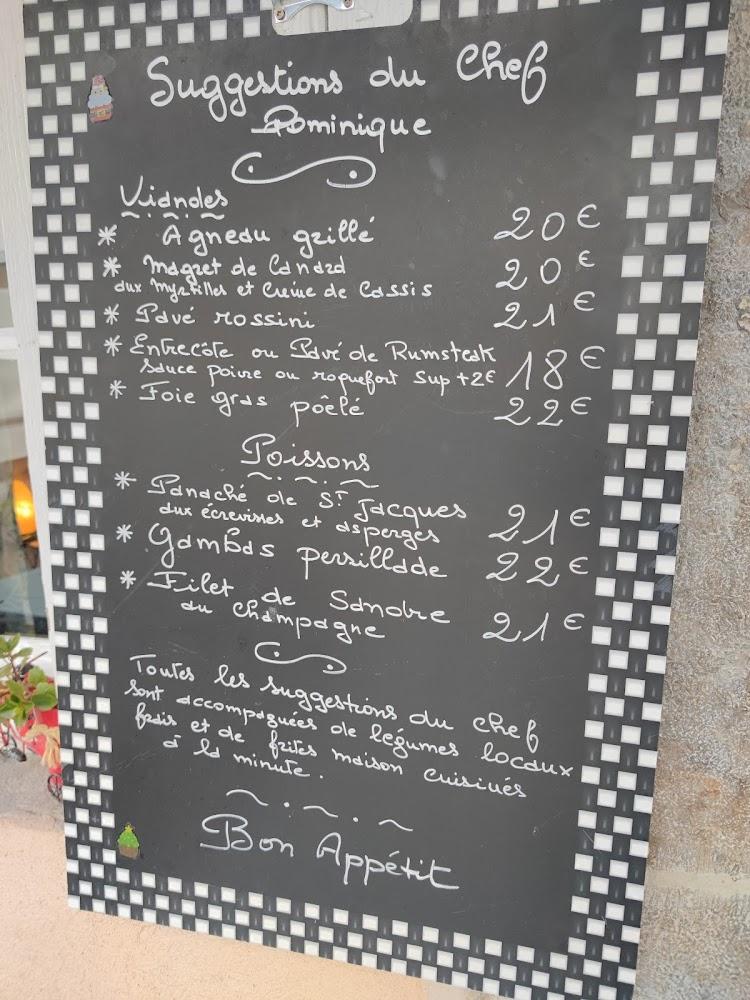 Suggestions du Chef
Dominique
Viandes
* Agneau grillé 20€
* Magret de Canard 20€
aux Myrtilles et Crème de Cassis
* Pavé rossini 21€
* Entrecôte ou Pavé de Rumsteak 18€
Sauce poivre ou roquefort sup +2€
* Foie gras poêlé 22€
Poissons
* Panaché de St Jacques 21€
aux écrevisses et asperges
* Gambas persillade 22€
* Filet de Sandre 21€
au Champagne
Toutes les suggestions du chef
sont accompagnées de légumes locaux
frais et de frites maison cuisinés
à la minute.
Bon Appétit